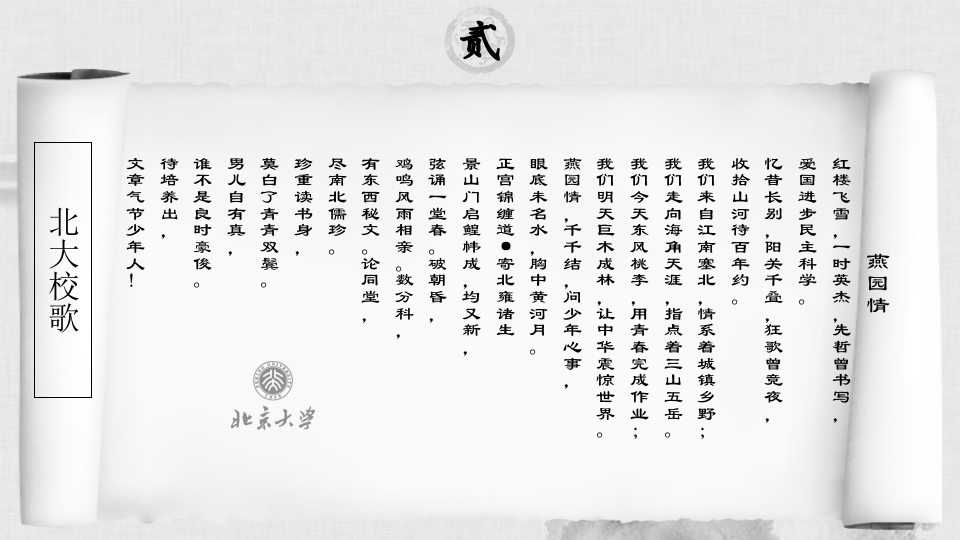 贰
燕园情
红楼飞雪,一时英杰,先哲曾书写,
爱国进步民主科学。
忆昔长别,阳关千叠,狂歌曾竞夜,
收拾山河待百年约。
我们来自江南塞北,情系着城镇乡野;
我们走向海角天涯,指点着三山五岳。
我们今天东风桃李,用青春完成作业;
我们明天巨木成林,让中华震惊世界。
燕园情,千千结,问少年心事,
眼底未名水,胸中黄河月。
正宫锦缠道●寄北雍诸生
景山门启鳇帏成,均又新,
弦诵一堂春。破朝昏,
鸡鸣风雨相亲。数分科,
有东西秘文。论同堂,
尽南北儒珍。
珍重读书身,
莫白了青青双鬓。
男儿自有真,
谁不是良时豪俊。
待培养出,
文章气节少年人!
北大校歌
北京大学